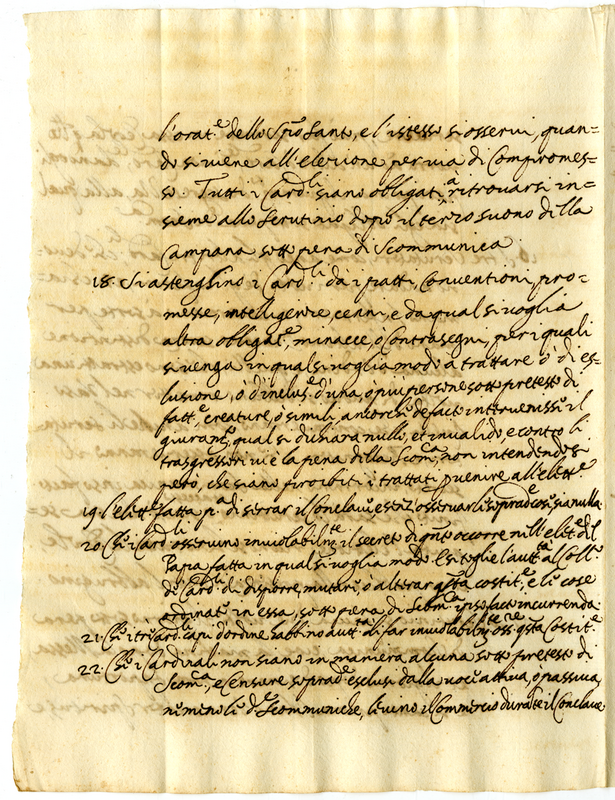 l'orat.e dello Sp.o Santo, e l'istesso si osservi, quan=
do si viene all'elezione per via di Compromes=
so. Tutti i Card.li siano obligati à ritrovarsi in=
sieme allo scrutinio dopo il terzo suono della
Campana sotto pena di Scommunica
18. Si astenghino i Card.li da i patti, Conventioni, pro=
messe, intelligenze, cenni, e da qual si voglia
altra obligat.e, minacce, ò Contrasegni, per i quali
si venga in qualsivoglia modo a trattare ò di es=
lusione, ò d'inclus.e d'una, ò più persone sotto pretesto di
fatt.e creature, ò simili, ancorche de facto intervenisse il
giuram.to, qual si dichiara nullo, et invalido, e contro li
trasgressori vi è la pena della Scom.ca, non intendendosi
però, che siano proibiti i trattati p venire all'elett.e
19. l'elett.e fatta p.a di serrar il Conclave, e senz'osservar le soprade cose sia nulla.
20. Che i Card.li osservino inviolabilm.te il secreto di q.nto occorre nell'elet.e del
Papa fatta in qual si voglia modo. E si toglie l'autt.tà al Coll.o
de Card.li di disporre, mutare, ò alterar q.sta costit.e, e le cose
ordinate in essa, sotto pena di Scom.ca ipso facto incurrenda
21. Che i trè Card.li capi d'ordine habbino autt.tà di far inviolabilm.te oss.re q.sta Costit.e
22. Che i Cardinali non siano in maniera alcuna sotto pretesto di
Scom.ca, e Censure soprad.e esclusi dalla voce attiva, ò passiva,
ne meno le d.e Scommuniche, levino il Commercio durate il Conclave